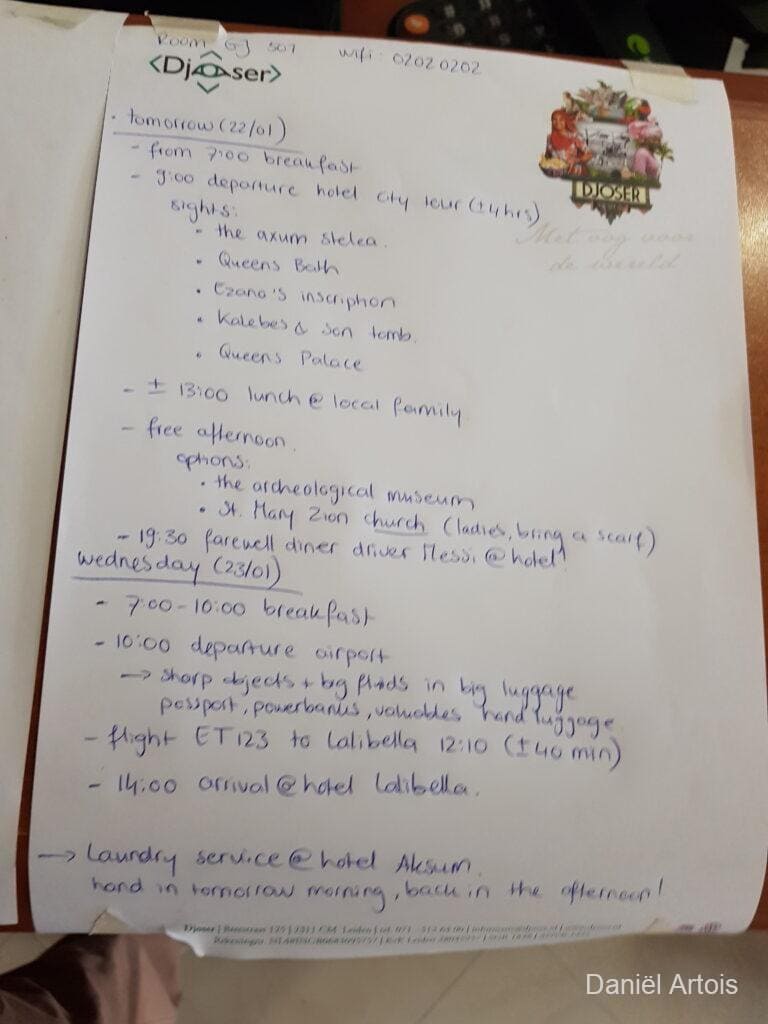 Room GJ 507 wifi: 02020202
<Djoser>
DJOSER
Met oog voor
de wereld
• tomorrow (22/01)
- from 7:00 breakfast
- 9:00 departure hotel city tour (±4hrs)
sights:
• the axum stelea.
• Queens Bath
• Ezana's inscription
• Kalebes & son tomb.
• Queens Palace
- ± 13:00 lunch @ local family
- free afternoon.
options:
• the archeological museum
• St. Mary Zion church (ladies, bring a scarf)
- 19:30 farewell diner driver Messi @ hotel!
Wednesday (23/01)
- 7:00-10:00 breakfast
- 10:00 departure airport
→ sharp objects + big fluids in big luggage
passport, powerbanks, valuables hand luggage
- flight ET123 to Lalibella 12:10 (±40 min)
- 14:00 arrival @ hotel Lalibella.
→ Laundry service @ hotel Aksum.
hand in tomorrow morning, back in the afternoon!
Djoser | 2311 Leiden | tel. 071
Daniël Artois